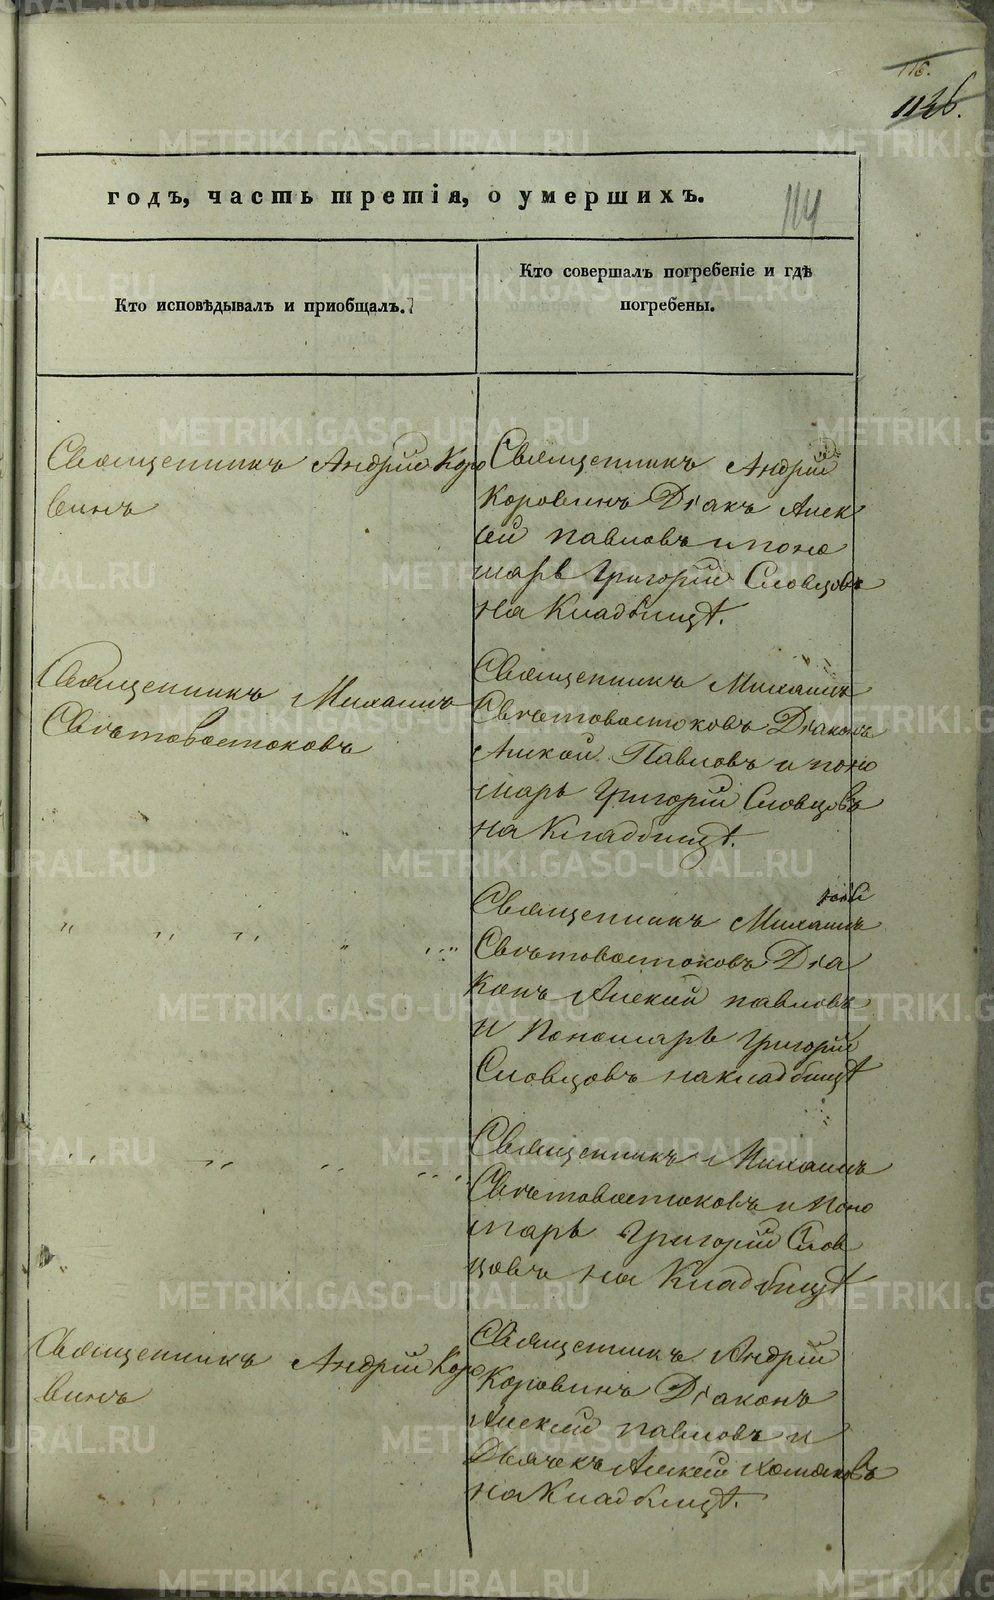 116.
114
годъ, часть третія, о умершихъ.
Кто исповѣдывалъ и приобщалъ.
Кто совершалъ погребеніе и гдѣ
погребены.
Священникъ Андрій Коро
винъ
Священникъ Андрій
Коровинъ Діакъ Алек
сей павловъ и поно
марь Григорій Словцовъ
на Кладбищѣ.
Священникъ Михаилъ
Свѣтовостоковъ
Священникъ Михаилъ
Свѣтовостоковъ Діаконъ
Алексей Павловъ и поно
марь Григорій Словцовъ
на Кладбищѣ.
" " " " "
Священникъ Михаилъ
Свѣтовостоковъ Діа
конъ Алексей павловъ
и Пономарь Григорій
Словцовъ на кладбищѣ
" " " "
Священникъ Михаилъ
Свѣтовостоковъ и Поно
марь Григорій Слов
цовъ на Кладбищѣ
Священникъ Андрій Коро
винъ
Священникъ Андрій
Коровинъ Діаконъ
Алексей павловъ и
Дьячекъ Алексей
на Кладбищѣ.
METRIKI.GASO-URAL.RU